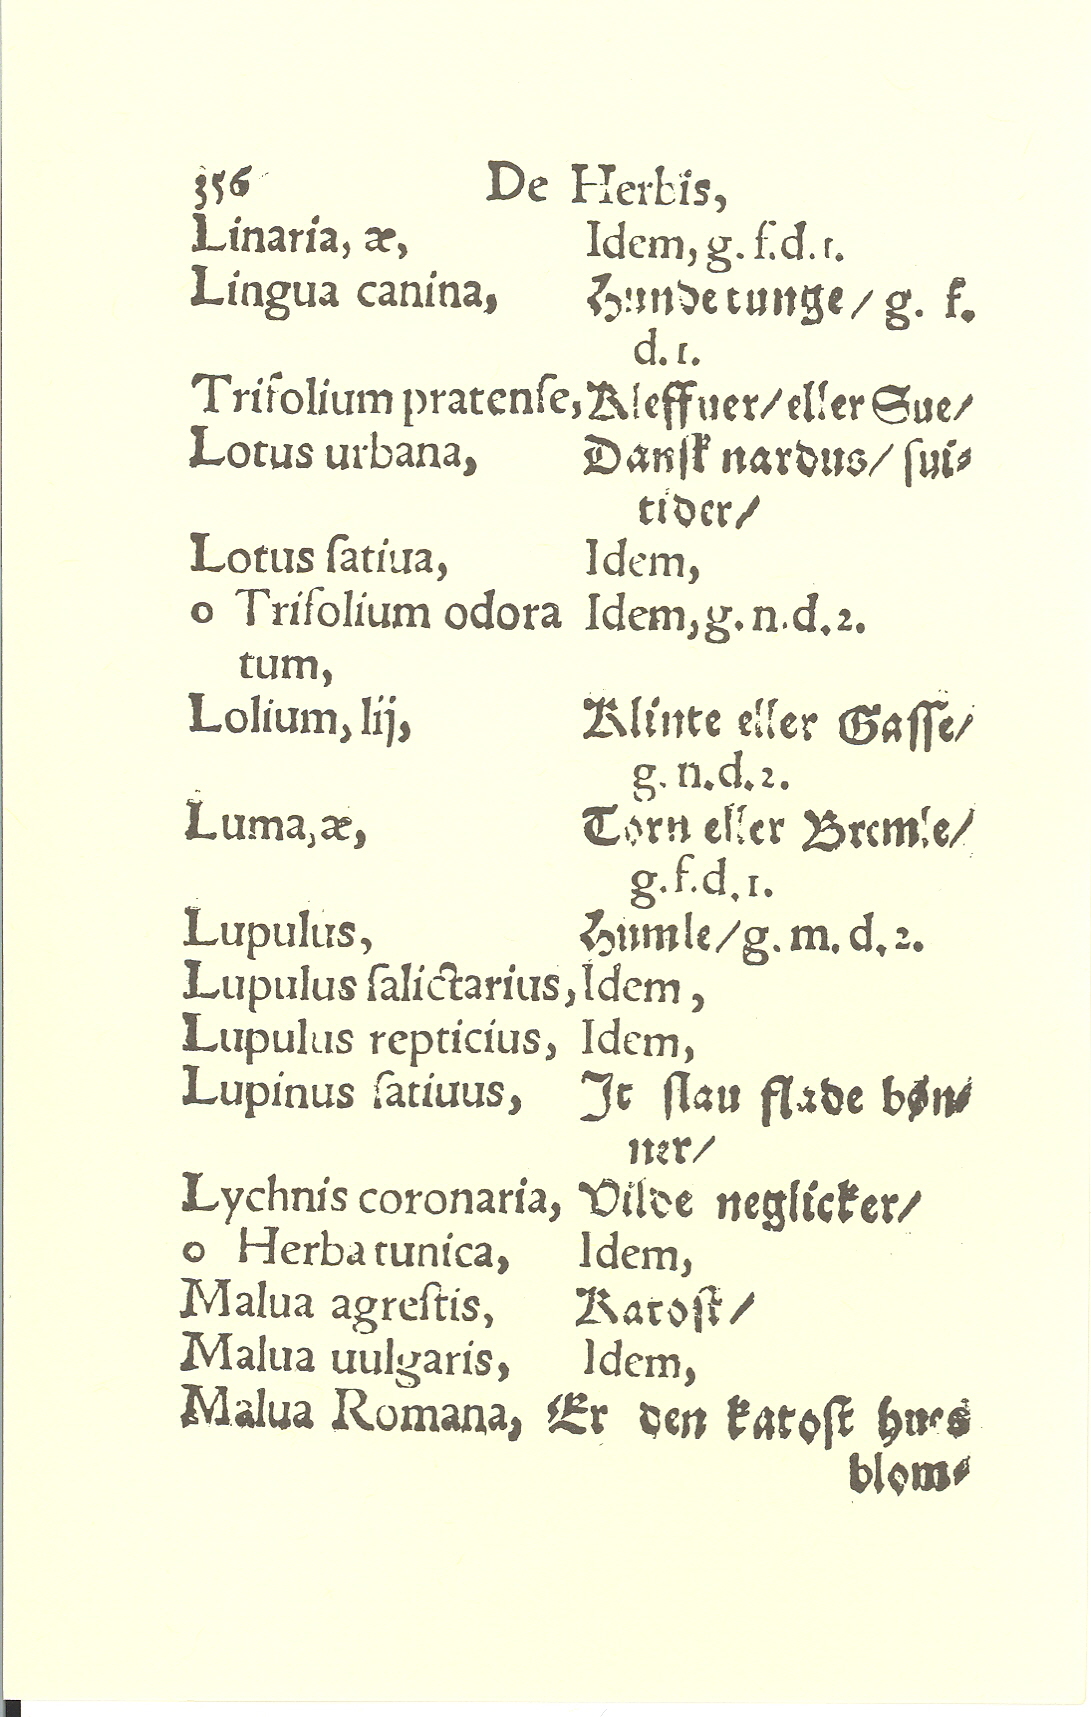 356 De Herbis,
Linaria, æ, Idem, g. f. d. 1.
Lingua canina, Hundetunge/ g. f.
d. 1.
Trifolium pratenſe, Kleffuer/ eller Sue/
Lotus urbana, Danſk nardus/ ſui⸗
tider/
Lotus ſatiua, Idem,
o Trifolium odora Idem, g. n. d. 2.
tum,
Lolium, lij, Klinte eller Gaſſe/
g. n. d. 2.
Luma, æ, Torn eller Bremle/
g. f. d. 1.
Lupulus, Humle/ g. m. d. 2.
Lupulus ſalictarius, Idem,
Lupulus repticius, Idem,
Lupinus ſatiuus, It ſlau flade bøn⸗
ner/
Lychnis coronaria, Vilde neglicker/
o Herba tunica, Idem,
Malua agreſtis, Katoſt/
Malua uulgaris, Idem,
Malua Romana, Er den katoſt hues
blom⸗